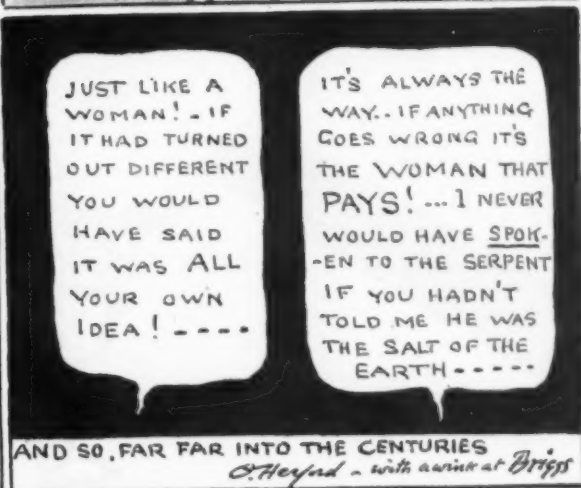 JUST LIKE A
WOMAN! - IF
IT HAD TURNED
OUT DIFFERENT
YOU WOULD
HAVE SAID
IT WAS ALL
YOUR OWN
IDEA! ----
IT'S ALWAYS THE
WAY.. IF ANYTHING
GOES WRONG IT'S
THE WOMAN THAT
PAYS! ... I NEVER
WOULD HAVE SPOK-
-EN TO THE SERPENT
IF YOU HADN'T
TOLD ME HE WAS
THE SALT OF THE
EARTH -----
AND SO, FAR FAR INTO THE CENTURIES
O. Herford - with a wink at Briggs